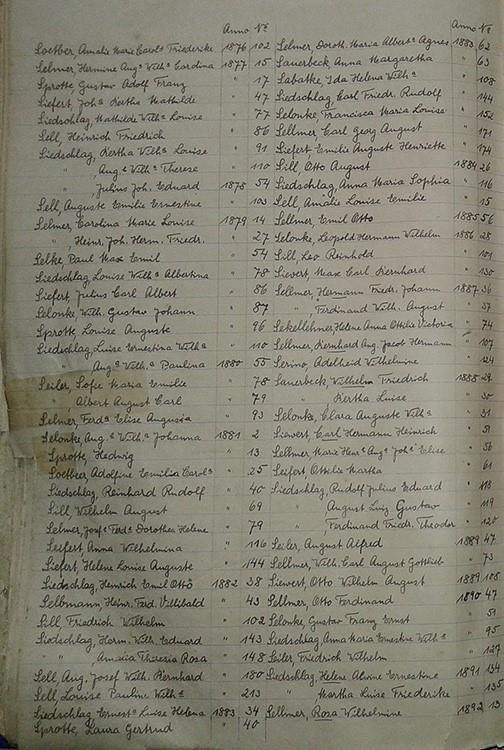 Anno No
Soetber, Amalie Marie Carola Friederike 1876 102
Selmer, Hermine Auga Wilha Carolina 1877 15
Sprotte, Gustav Adolf Franz " 17
Siefert, Joha Bertha Mathilde " 47
Siedschlag, Mathilde Wilha Louise " 77
Sell, Heinrich Friedrich " 86
Siedschlag, Bertha Wilha Louise " 91
" , Auga Wilha Therese " 110
" Julius Joh. Eduard 1878 54
Sell, Auguste Emilie Ernestine " 103
Selmer, Carolina Marie Louise 1879 14
" , Heinr. Joh. Herm. Friedr. " 27
Selke, Paul Max Emil " 54
Siedschlag, Louise Wilha Albertina " 78
Siefert, Julius Carl Albert " 86
Selonke, Wilh. Gustav Johann " 87
Sprotte, Louise Auguste " 96
Siedschlag, Luise Ernestina Wilha " 107
" Auga Wilha Paulina 1880 55
Seiler, Sofie Maria Emilie " 78
" Albert August Carl " 79
Selmer, Ferda Elise Augusta " 93
Selonke, Auga Wilha Johanna 1881 2
Sprotte, Hedwig " 13
Soetbeer, Adolfine Emilia Carola " 25
Siedschlag, Reinhard Rudolf " 40
Sill, Wilhelm August " 69
Selmer, Josefa Ferda Dorothea Helene " 79
Seifert, Anna Wilhelmina " 116
Siefert, Helene Louise Auguste " 144
Siedschlag, Heinrich Emil Otto 1882 38
Sellmann, Heinr. Ferd. Willibald " 43
Sill, Friedrich Wilhelm " 102
Siedschlag, Herm. Wilh. Eduard " 143
" , Amalia Theresia Rosa " 148
Sell, Aug. Josef Wilh. Bernhard " 180
Sell, Louise Pauline Wilha " 213
Siedschlag, Ernesta Luise Helena 1883 34
Sprotte, Laura Gertrud " 40
Anno No
Selmer, Doroth. Maria Alberta Agnes 1883 62
Sauerbeck, Anna Margaretha " 63
Sabatke, Ida Helena Wilha " 108
Siedschlag, Carl Friedr. Rudolf " 144
Selonke, Francisca Maria Louise " 152
Sellmer, Carl Georg August " 171
Siefert, Emilie Auguste Henriette " 174
Sill, Otto August 1884 26
Siedschlag, Anna Maria Sophia " 116
Sell, Amalie Louise Emilie " 15
Sellmer, Emil Otto 1885 56
Selonke, Leopold Hermann Wilhelm 1886 28
Sill, Leo Reinhold " 101
Sievert, Max Carl Bernhard " 130
Sellmer, Hermann Friedr. Johann 1887 36
" Ferdinand Wilh. August " 37
Sekeblehner, Helene Anna Ottilie Victoria " 74
Sellmer, Bernhard Aug. Jacob Hermann " 107
Serino, Adelheid Wilhelmine " 124
Sauerbeck, Wilhelm Friedrich 1888 29
" Bertha Luise " 30
Selonke, Clara Auguste Wilha " 31
Sievert, Carl Hermann Heinrich " 51
Sellmer, Marie Hena Auga Joha Elise " 56
Seifert, Ottilie Martha " 61
Siedschlag, Rudolf Julius Eduard " 118
" August Luis Gustav " 119
" , Ferdinand Friedr. Theodor " 120
Seiler, August Alfred 1889 47
Sellmer, Wilh. Carl August Gottlieb " 73
Sievert, Otto Wilhelm August 1889 108
Sellmer, Otto Ferdinand 1890 47
Selonke, Gustav Franz Ernst " 51
Siedschlag, Anna Maria Ernestine Wilha " 95
Seiler, Friedrich Wilhelm " 127
Siedschlag, Helene Alwine Ernestine 1891 134
" Martha Luise Friederike " 135
Sellmer, Rosa Wilhelmine 1892 13